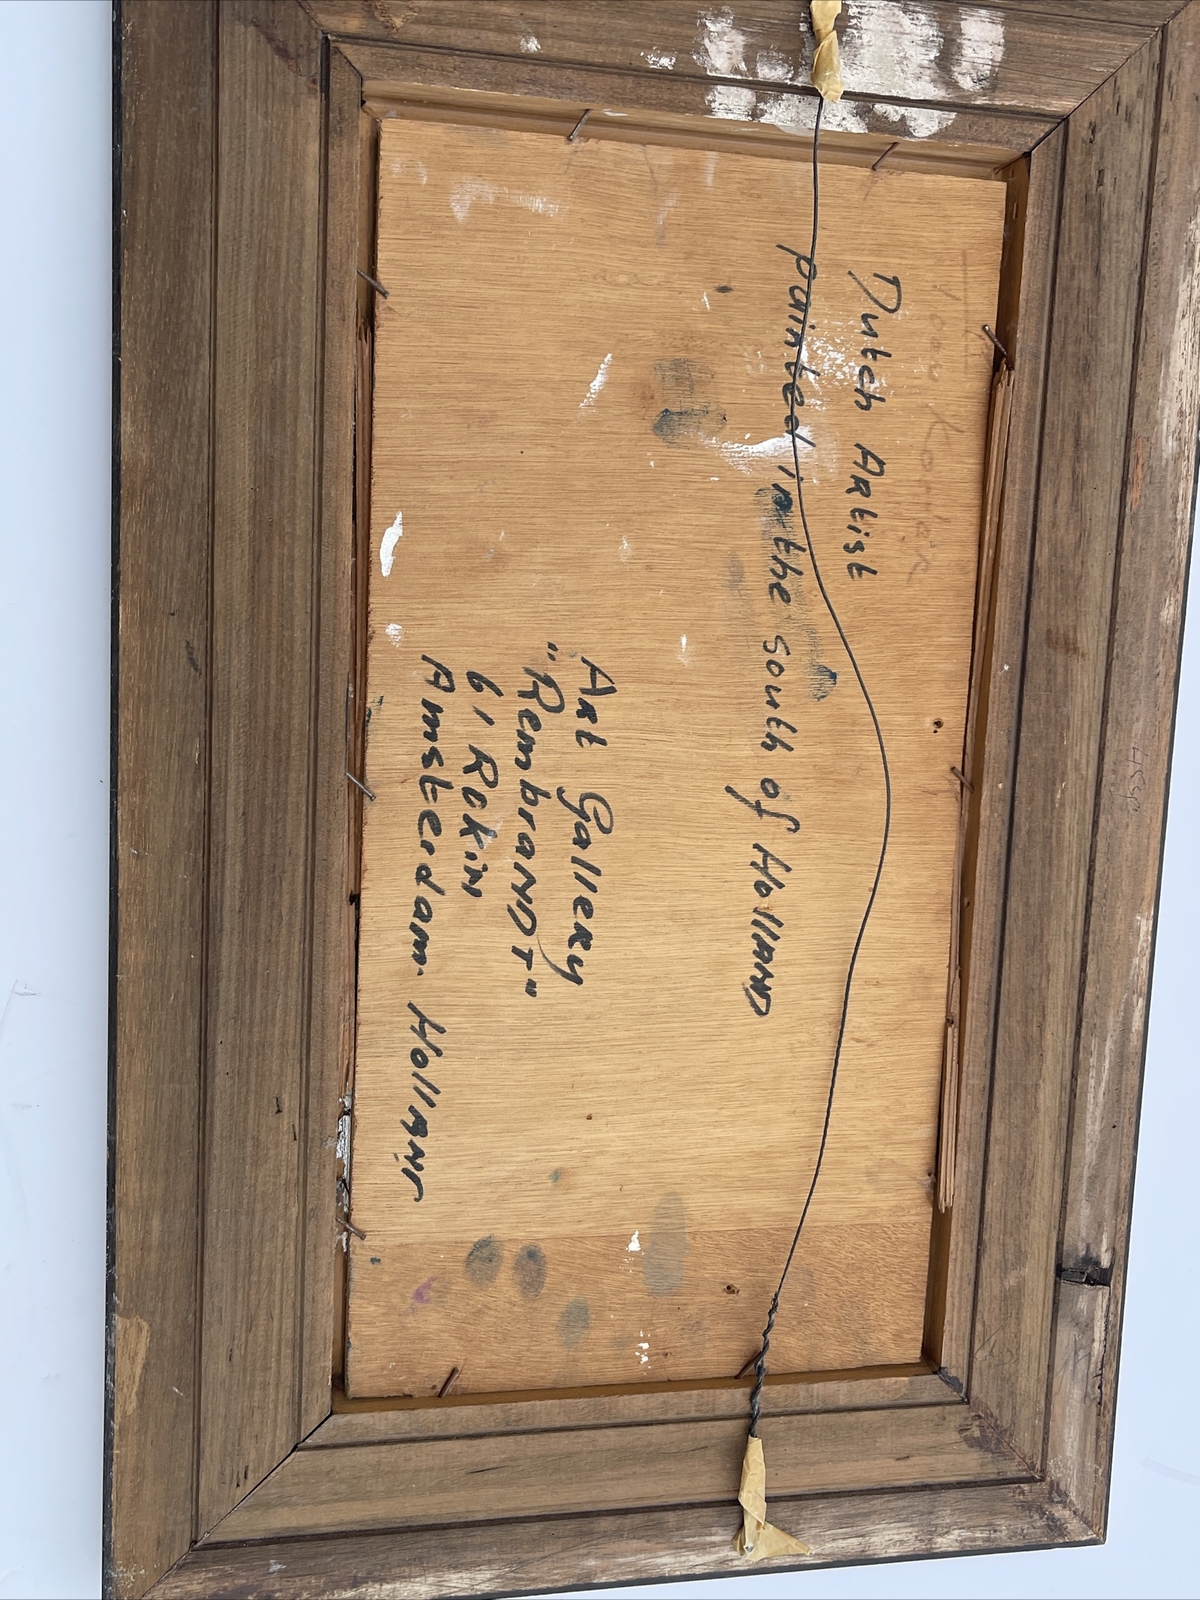 Dutch Artist
painted in the south of Holland
Art Gallery
"Rembrandt"
61 Rokin
Amsterdam. Holland